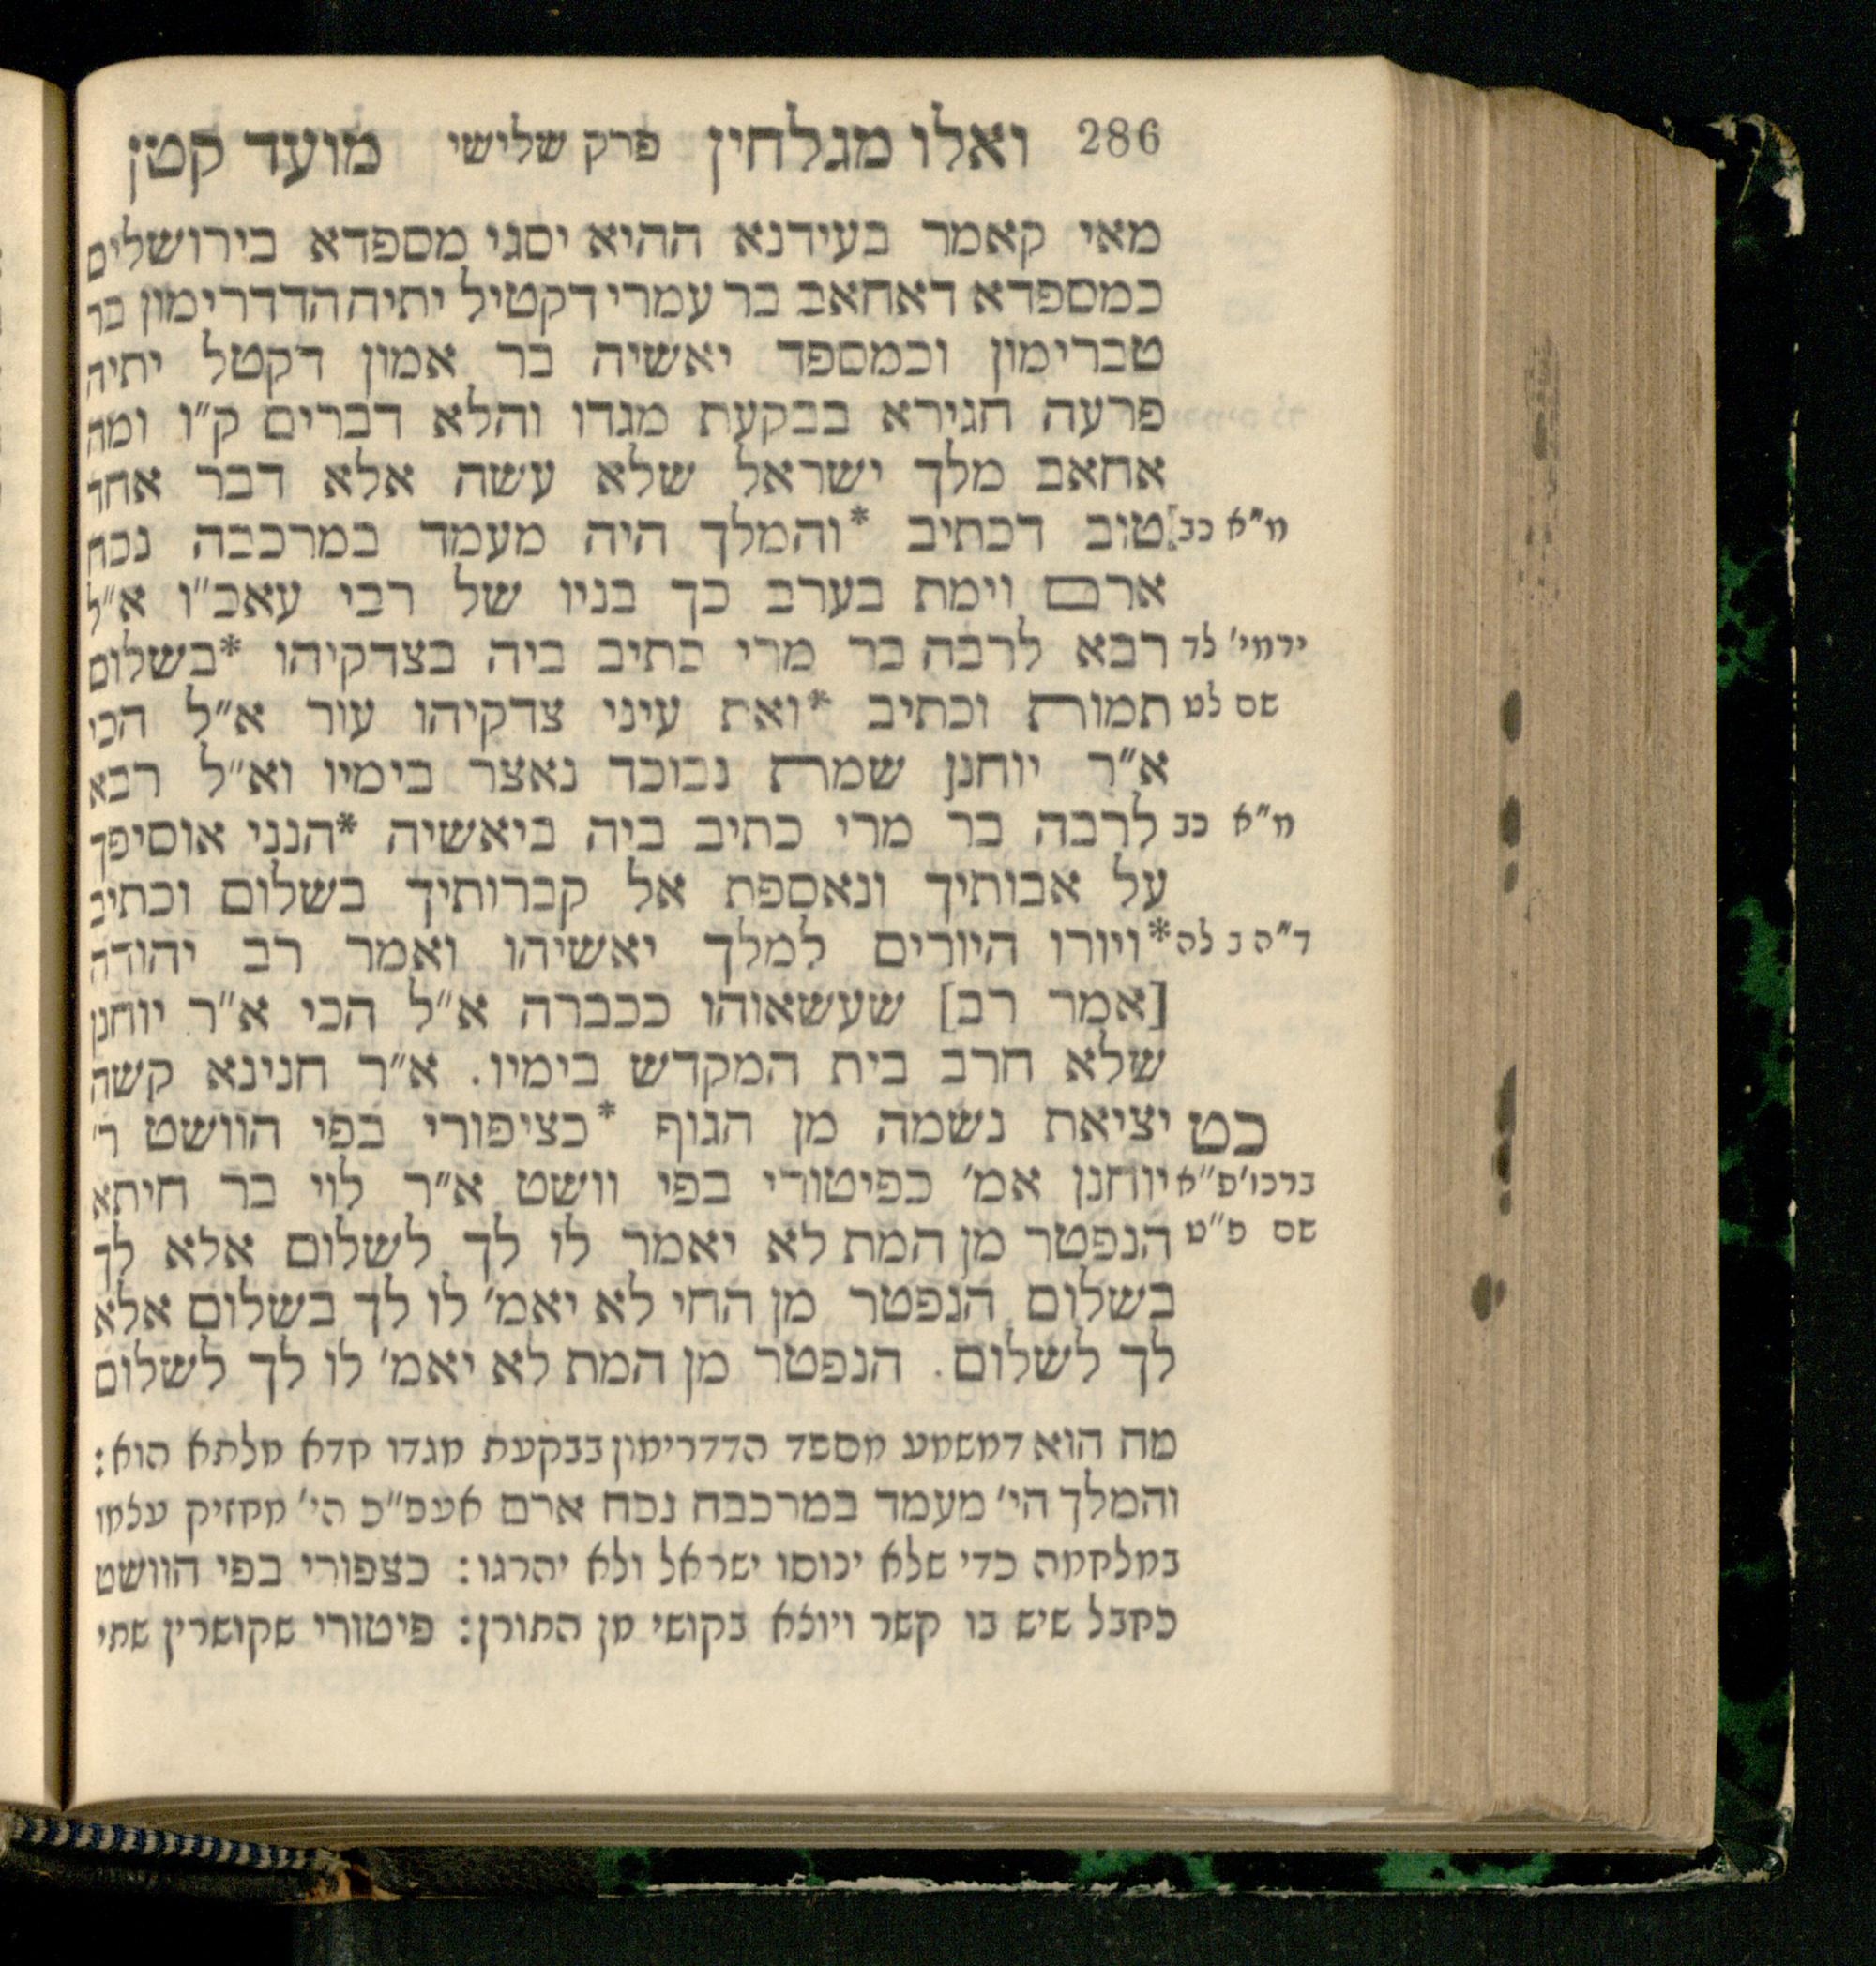 286 ואלו מגלחין פרק שלישי מועד קטן
מאי קאמר בעידנא ההיא יסגי מספדא בירושלים
כמספדא דאחאב בר עמרי דקטיל יתיה הדדרימון בר
טברימון וכמספד יאשיה בר אמון דקטל יתיה
פרעה חגירא בבקעת מגדו והלא דברים ק״ו ומה
אחאב מלך ישראל שלא עשה אלא דבר אחד
מ״א כב] טוב דכתיב *והמלך היה מעמד במרכבה נכח
ארם וימת בערב כך בניו של רבי עאכ״ו א״ל
ירמי׳ לד רבא לרבה בר מרי כתיב ביה בצדקיהו *בשלום
שם לט תמות וכתיב *ואת עיני צדקיהו עור א״ל הכי
א״ר יוחנן שמת נבוכד נאצר בימיו וא״ל רבא
מ״א כב לרבה בר מרי כתיב ביה ביאשיה *הנני אוסיפך
על אבותיך ונאספת אל קברותיך בשלום וכתיב
ד״ה ב לה *ויורו היורים למלך יאשיהו ואמר רב יהודה
[אמר רב] שעשאוהו ככברה א״ל הכי א״ר יוחנן
שלא חרב בית המקדש בימיו. א״ר חנינא קשה
כט יציאת נשמה מן הגוף *כציפורי בפי הוושט ר׳
ברכו׳ פ״א יוחנן אמ׳ כפיטורי בפי וושט א״ר לוי בר חיתא
שם פ״ט הנפטר מן המת לא יאמר לו לך לשלום אלא לך
בשלום הנפטר מן החי לא יאמ׳ לו לך בשלום אלא
לך לשלום. הנפטר מן המת לא יאמ׳ לו לך לשלום
מה הוא דמשמע מספד הדדרימון בבקעת מגדו חדא מלתא הוא:
והמלך הי׳ מעמד במרכבה נכח ארם אעפ״כ הי׳ מחזיק עצמו
במלחמה כדי שלא ינוסו ישראל ולא יהרגו: כצפורי בפי הוושט
כחבל שיש בו קשר ויוצא בקושי מן התורן: פיטורי שקושרין שתי